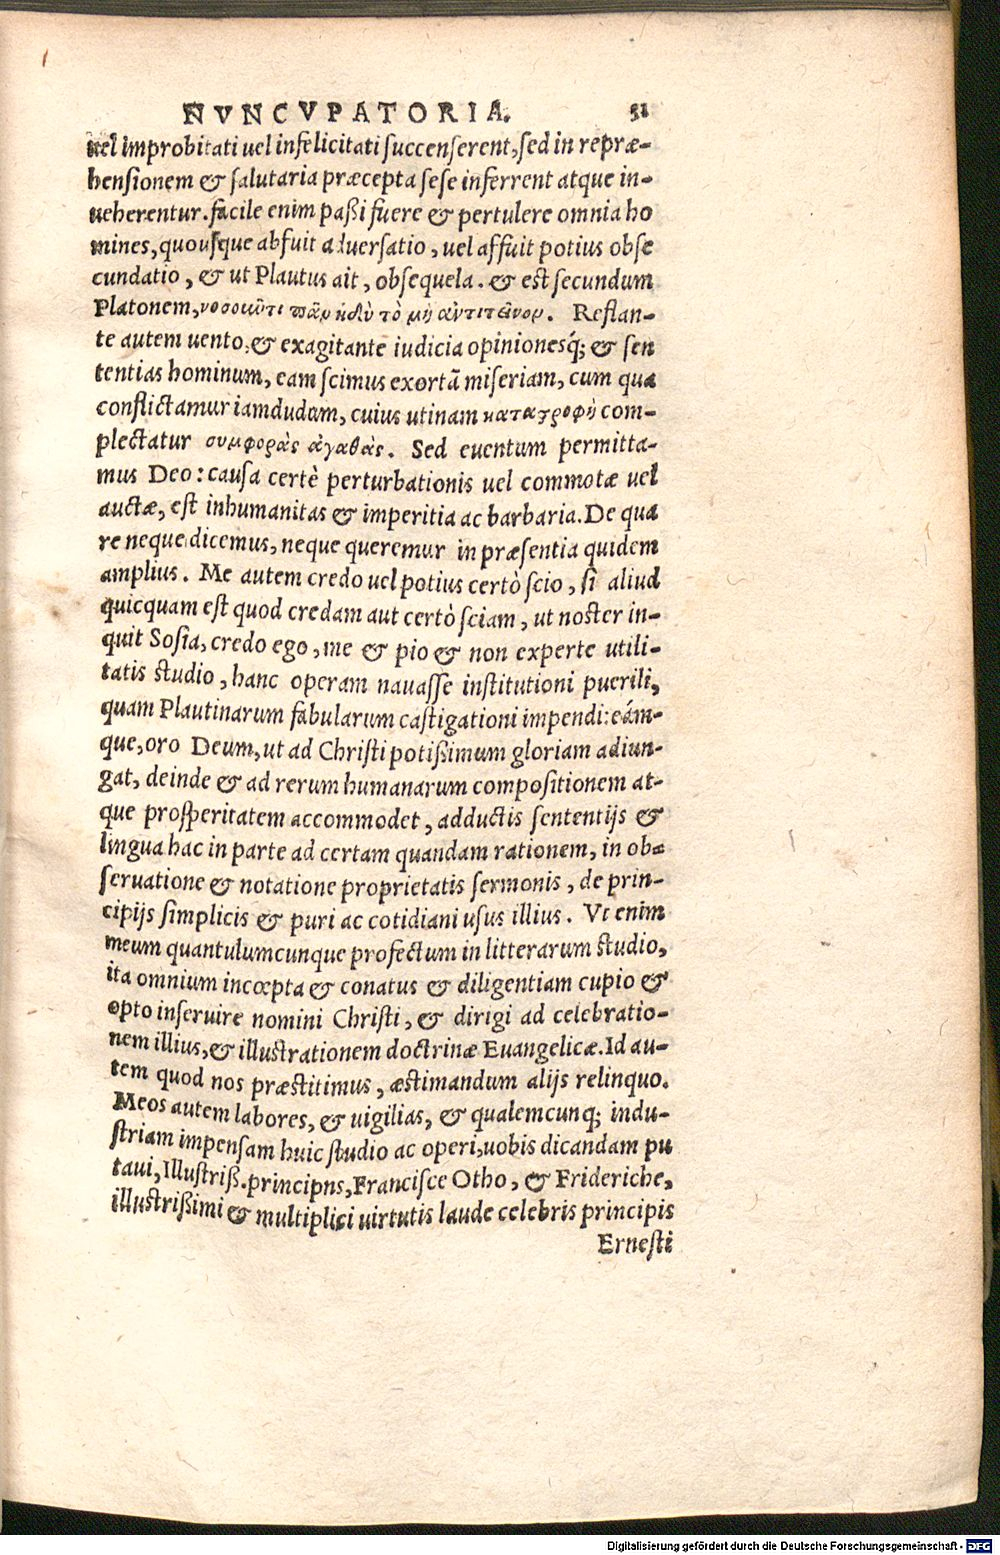 NVNCVPATORIA. 51
uel improbitati uel infelicitati succenserent, sed in repræ-
hensionem & salutaria præcepta sese inferrent atque in-
ueherentur. facile enim paßi fuere & pertulere omnia ho
mines, quousque abfuit aduersatio, uel affuit potius obse
cundatio, & ut Plautus ait, obsequela. & est secundum
Platonem, νοσοῦντι πᾶν ἡδὺ τὸ μὴ ἀντιτεῖνον. Reflan-
te autem uento, & exagitante iudicia opinionesq́; & sen
tentias hominum, eam scimus exortã miseriam, cum qua
conflictamur iamdudum, cuius utinam καταστροφὴ com-
plectatur συμφορὰς ἀγαθὰς. Sed euentum permitta-
mus Deo: causa certè perturbationis uel commotæ uel
auctæ, est inhumanitas & imperitia ac barbaria. De qua
re neque dicemus, neque queremur in præsentia quidem
amplius. Me autem credo uel potius certò scio, si aliud
quicquam est quod credam aut certò sciam, ut noster in-
quit Sosia, credo ego, me & pio & non experte utili-
tatis studio, hanc operam nauasse institutioni puerili,
quam Plautinarum fabularum castigationi impendi: eám-
que, oro Deum, ut ad Christi potißimum gloriam adiun-
gat, deinde & ad rerum humanarum compositionem at-
que prosperitatem accommodet, adductis sententijs &
lingua hac in parte ad certam quandam rationem, in ob-
seruatione & notatione proprietatis sermonis, de prin-
cipijs simplicis & puri ac cotidiani usus illius. Vt enim
meum quantulumcunque profectum in litterarum studio,
ita omnium incœpta & conatus & diligentiam cupio &
opto inseruire nomini Christi, & dirigi ad celebratio-
nem illius, & illustrationem doctrinæ Euangelicæ. Id au-
tem quod nos præstitimus, æstimandum alijs relinquo.
Meos autem labores, & uigilias, & qualemcunq; indu-
striam impensam huic studio ac operi, uobis dicandam pu
taui, Illustriß. principns, Francisce Otho, & Frideriche,
illustrißimi & multiplici uirtutis laude celebris principis
Ernesti
Digitalisierung gefördert durch die Deutsche Forschungsgemeinschaft - DFG